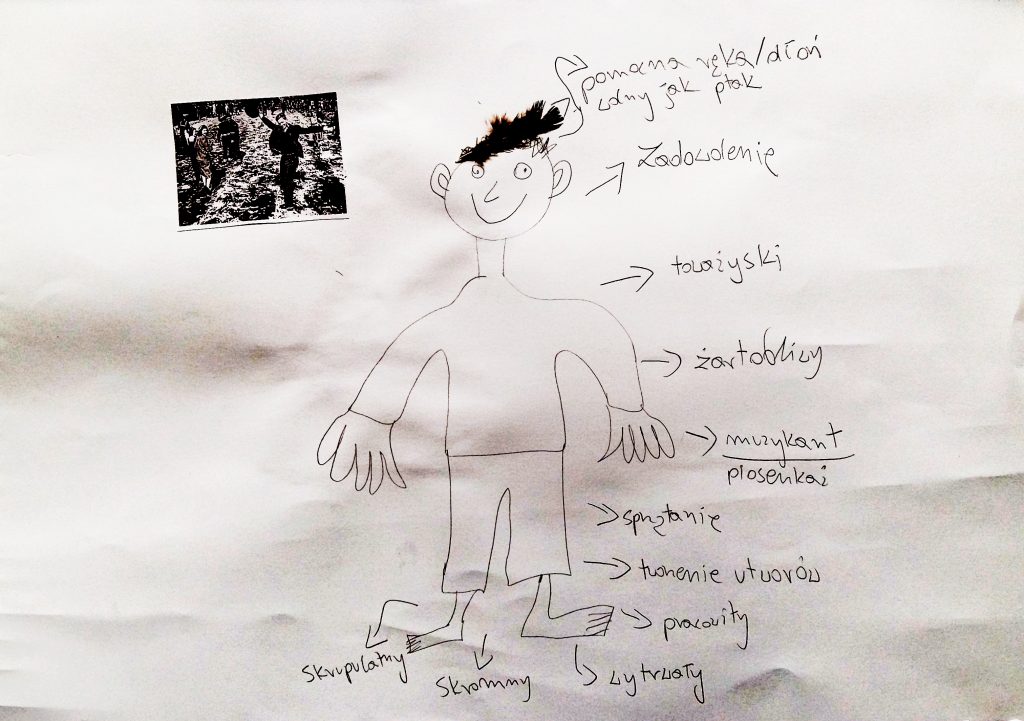 pomocna ręka/dłoń
wolny jak ptak
Zadowolenię
toważyski
żartobliwy
muzykant
piosenkaż
sprzątanię
tworzenie utworów
pracowity
wytrwały
skromny
skrupulatny